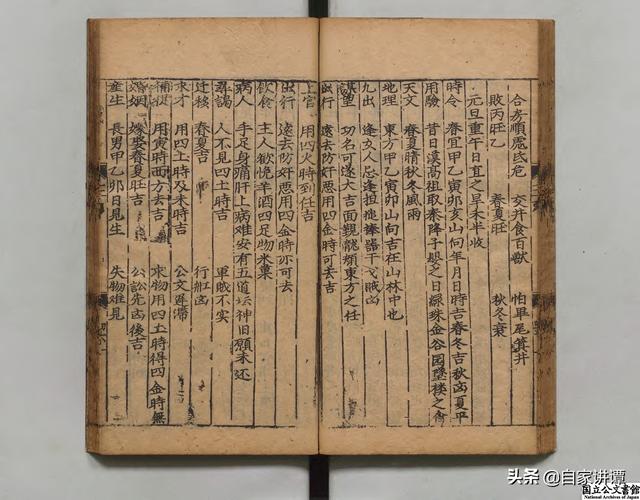 合房順處氐危 交井食百獸 怕畢尾箕井
敗丙旺乙 春夏旺 秋冬衰
元旦重午日宜之早未半收
時令 春宜甲乙寅卯亥山向年月日時吉春冬吉秋凶夏平
用驗 昔日漢高祖取秦降子嬰之日深珠金谷園墜樓之會
天文 春夏晴秋冬風雨
地理 東方甲乙寅卯山向吉在山林中也
九出 逢女人忌逢
功名可遂大吉面親龍顏東方之任
出行 遠去防奸惡用四金時可去吉
上官 用四火時到任吉
出行 遠去防奸惡用四金時亦可去
飲食 主人歡悅羊酒四足物米菓
病人 手足身痛肝上病难安有五道坛神旧願未还
尋謁 人不見四土時吉 軍賊不实
迁移 春夏吉 行舡凶
求才 用四土時及未時吉 公文遲滯
用寅時西方去吉 求物用四土時得四金時無
婚姻 嫁娶春夏旺吉 公訟先凶後吉
產生 長男甲乙卯日見生 失物难見
头条 @自家讲谭
国立公文書館
National Archives of Japan